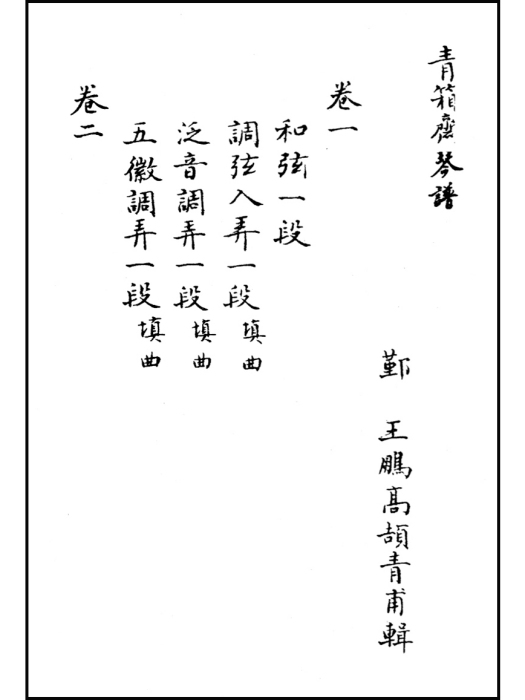 青箱齋琴譜
鄞　王鵬高頡青甫輯
卷一
和弦一段
調弦入弄一段填曲
泛音調弄一段填曲
五徽調弄一段填曲
卷二